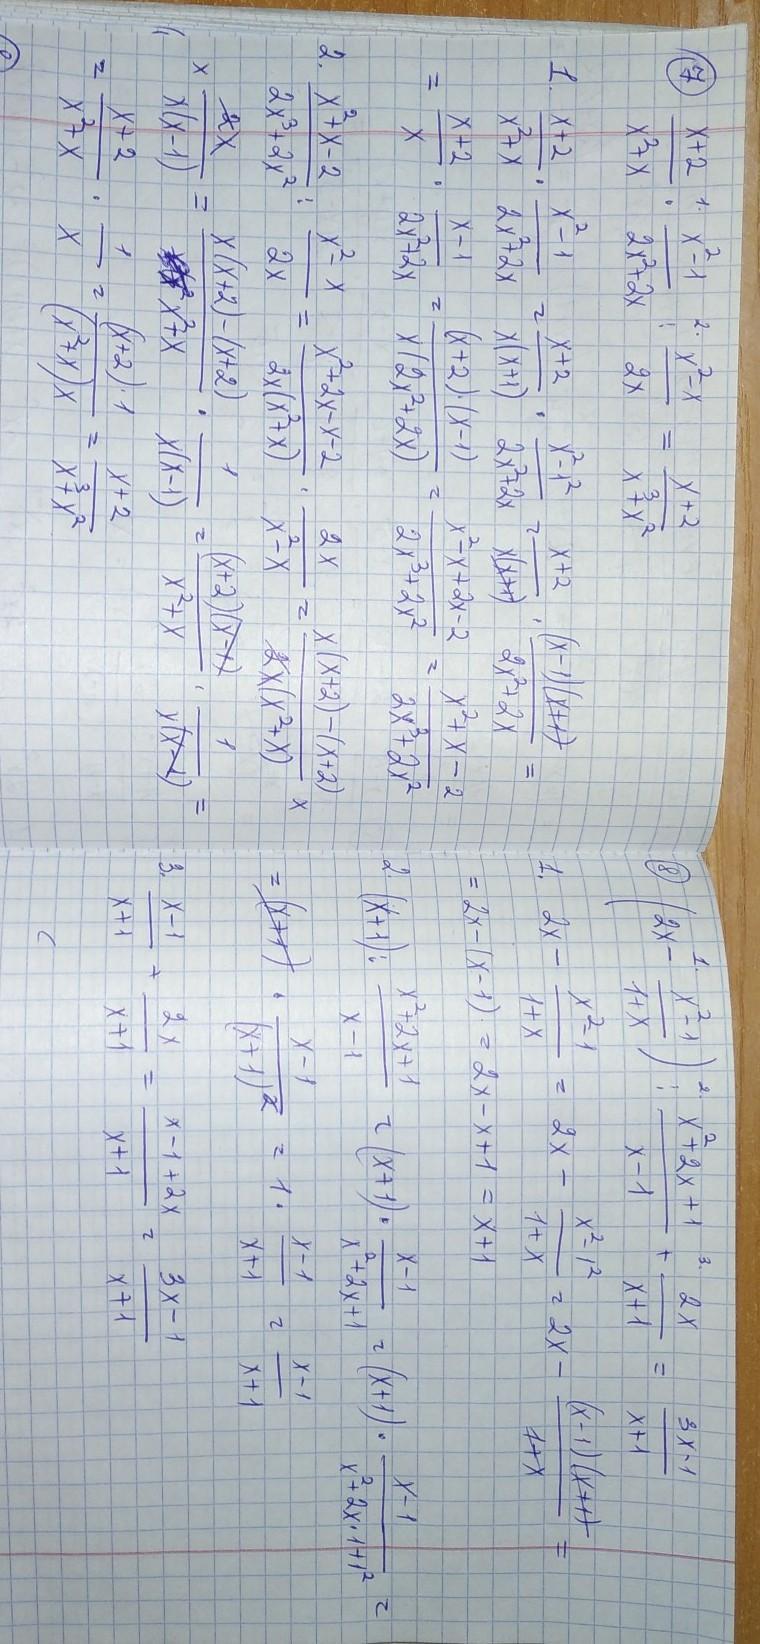 (7) x+2/x²+x · x²-1/2x²+2x : x²-x/2x = x+2/x³+x²
1. x+2/x²+x · x²-1/2x²+2x = x+2/x(x+1) · x²-1²/2x²+2x = x+2/x(x+1) · (x-1)(x+1)/2x²+2x =
= x+2/x · x-1/2x²+2x = (x+2)·(x-1)/x(2x²+2x) = x²-x+2x-2/2x³+2x² = x²+x-2/2x³+2x²
2. x²+x-2/2x³+2x² : x²-x/2x = x²+2x-x-2/2x(x²+x) · 2x/x²-x = x(x+2)-(x+2)/2x(x²+x) ×
× 2x/x(x-1) = x(x+2)-(x+2)/x²+x · 1/x(x-1) = (x+2)(x-1)/x²+x · 1/x(x-1) =
= x+2/x²+x · 1/x = (x+2)·1/(x²+x)x = x+2/x³+x²
(8) (2x - x²-1/1+x) : x²+2x+1/x-1 + 2x/x+1 = 3x-1/x+1
1. 2x - x²-1/1+x = 2x - x²-1²/1+x = 2x - (x-1)(x+1)/1+x =
= 2x-(x-1) = 2x-x+1 = x+1
2. (x+1) : x²+2x+1/x-1 = (x+1) · x-1/x²+2x+1 = (x+1) · x-1/x²+2x·1+1² =
= (x+1) · x-1/(x+1)² = 1 · x-1/x+1 = x-1/x+1
3. x-1/x+1 + 2x/x+1 = x-1+2x/x+1 = 3x-1/x+1